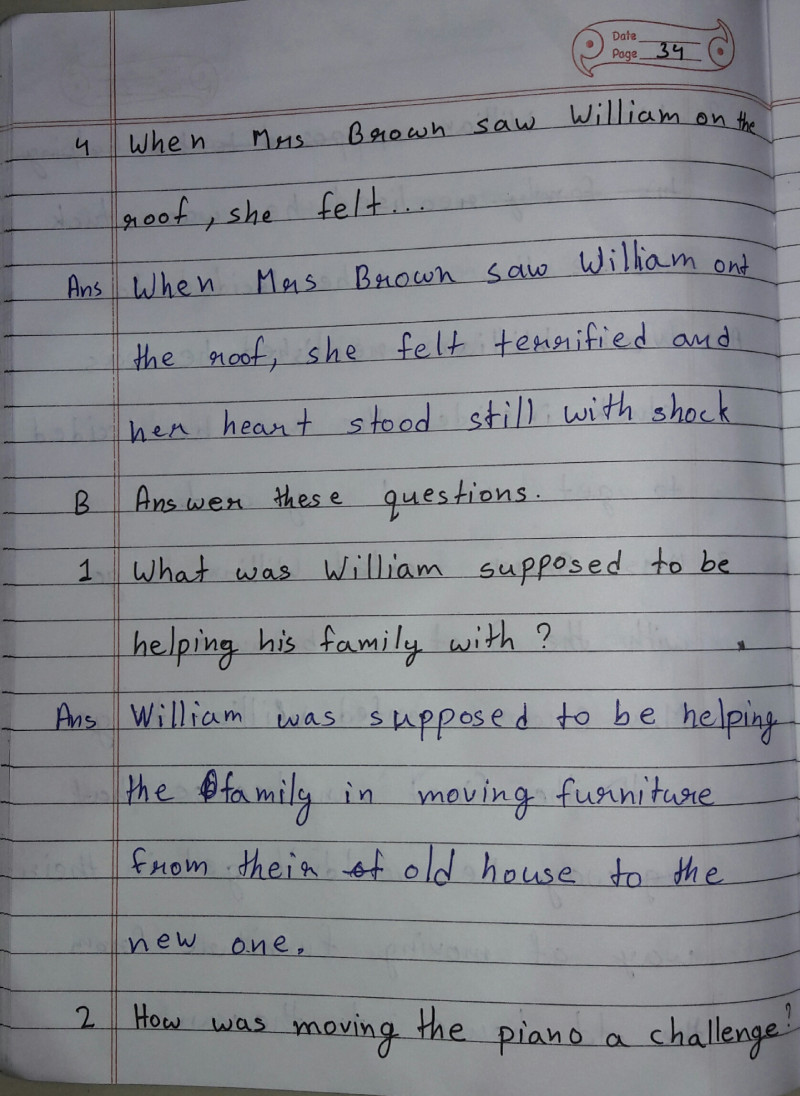 Date
Page 34
4 When Mrs Brown saw William on the
roof, she felt...
Ans When Mrs Brown saw William ont
the roof, she felt terrified and
her heart stood still with shock
B Answer these questions.
1 What was William supposed to be
helping his family with ?
Ans William was supposed to be helping
the family in moving furniture
from their of old house to the
new one.
2 How was moving the piano a challenge?